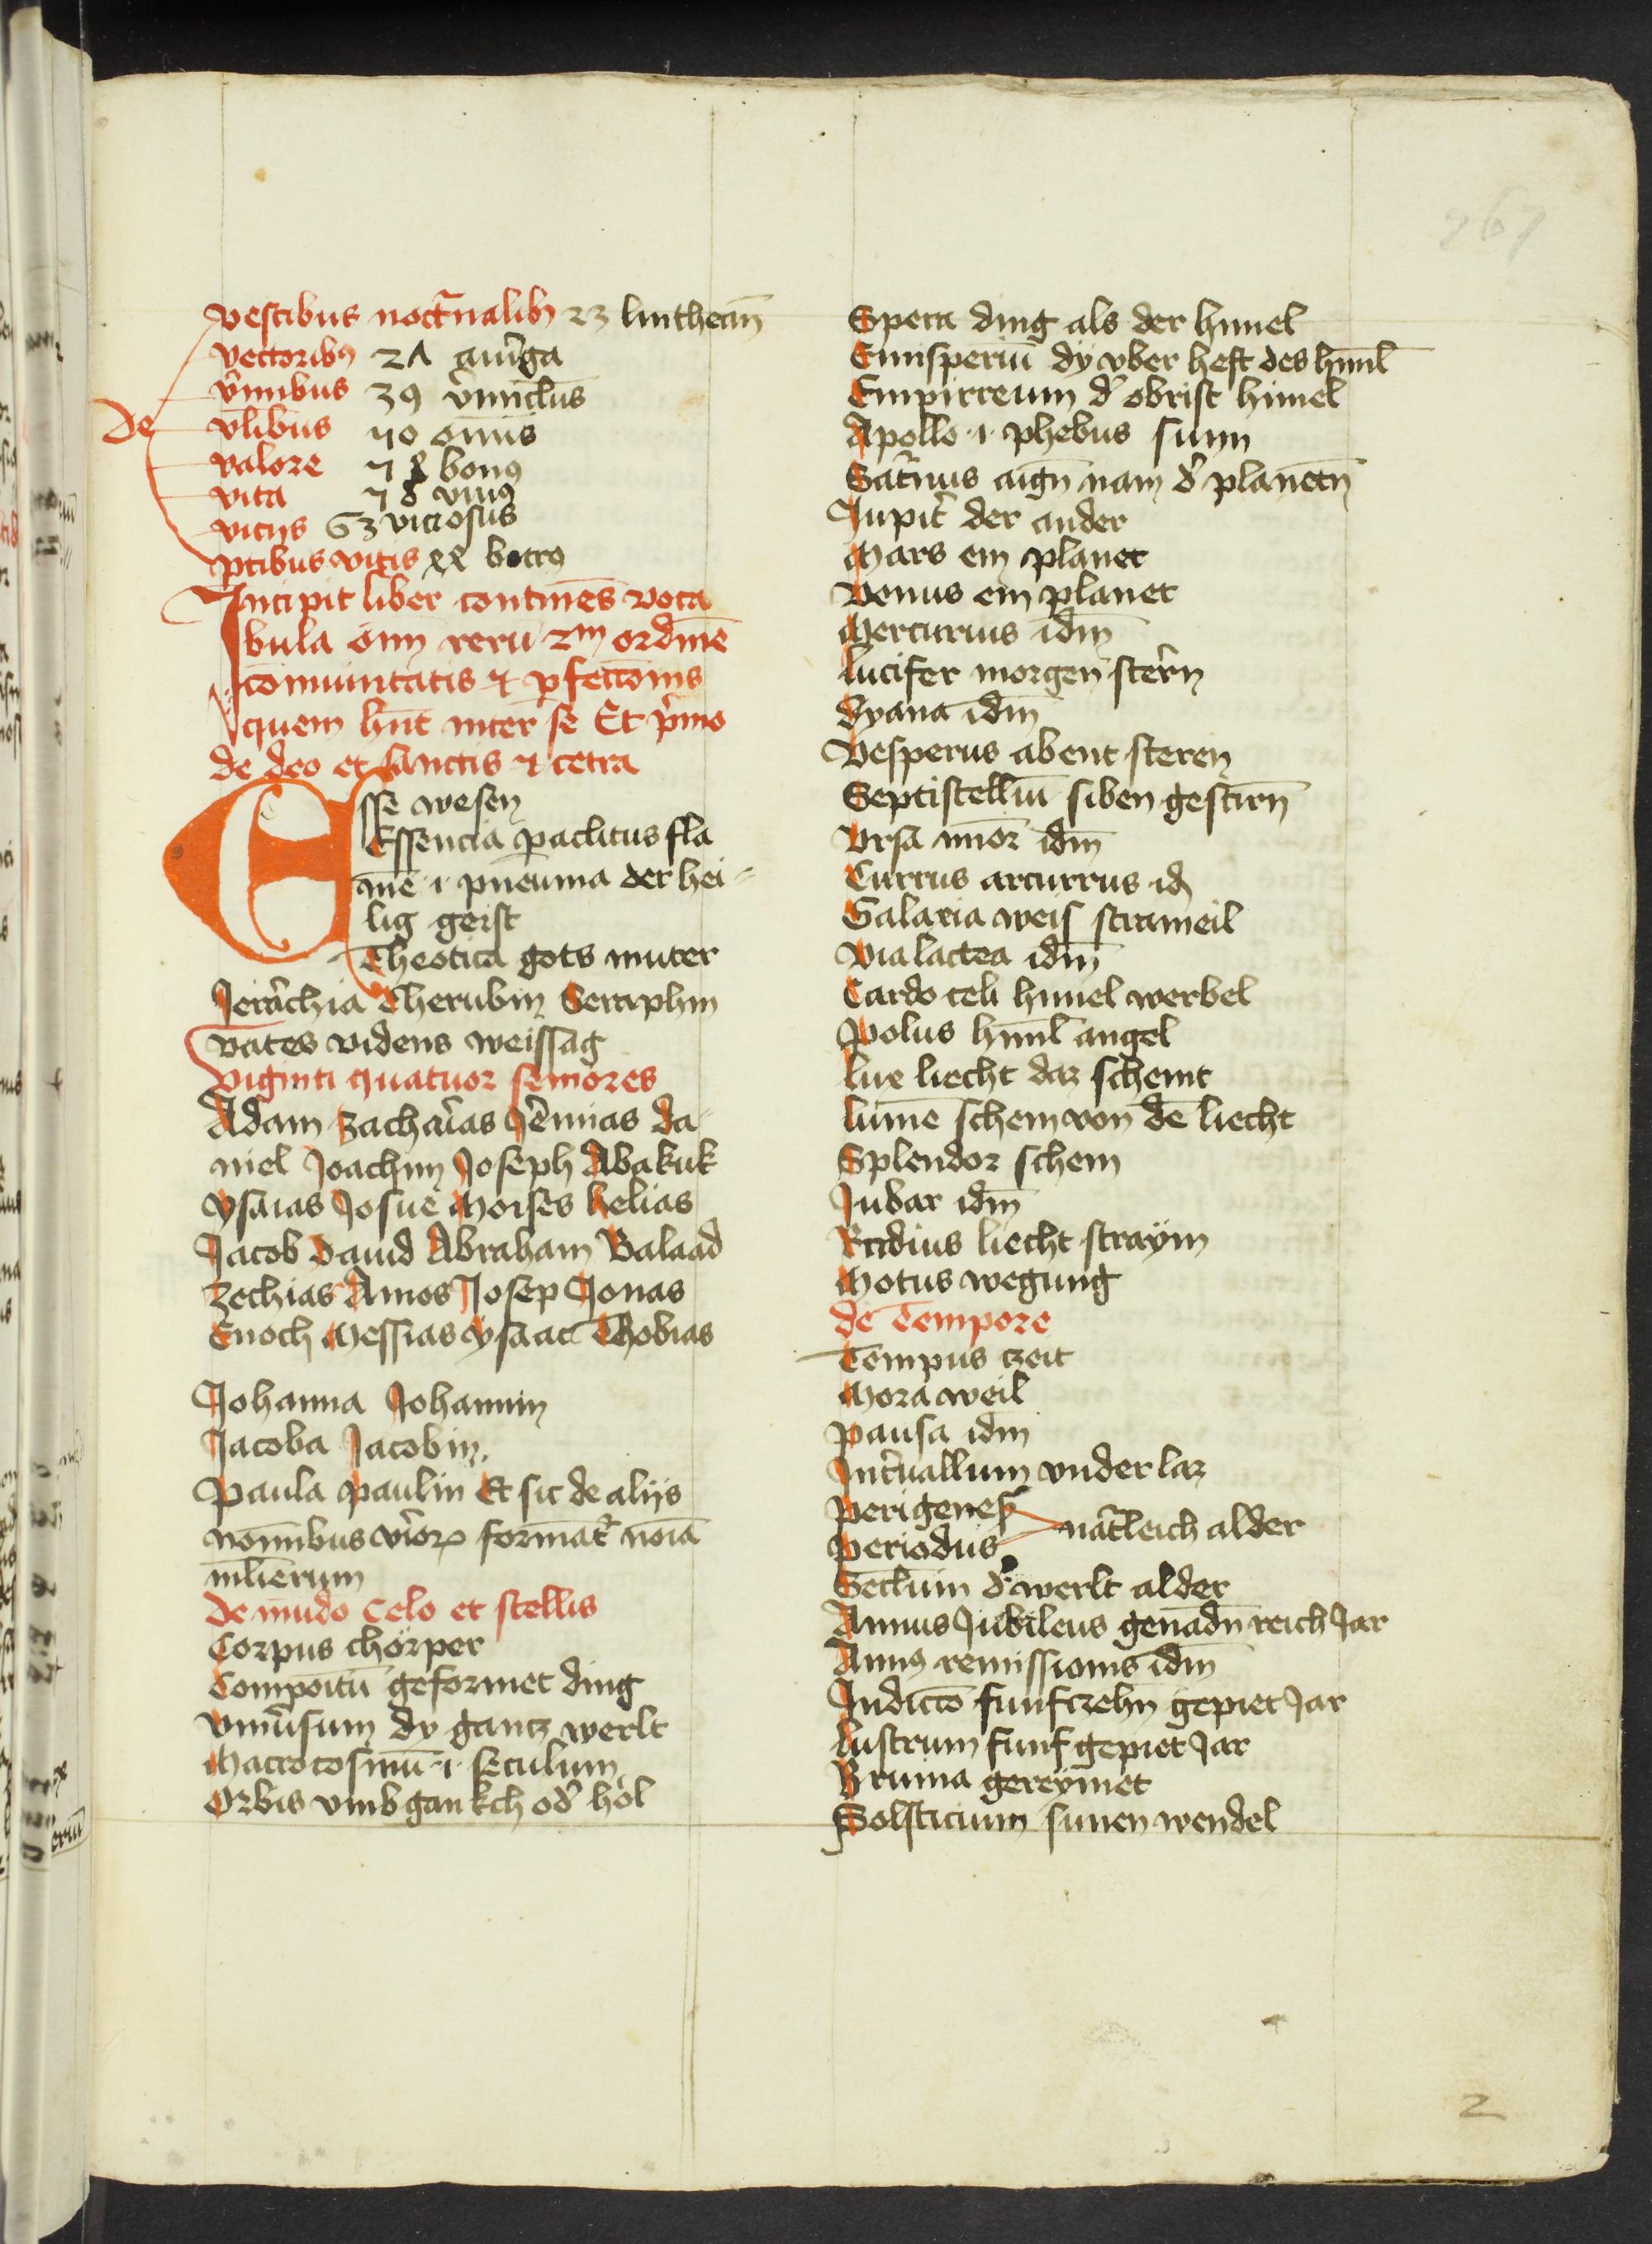 vestibus noct̄nalibȝ 23 lintheam̄
vectoribꝰ 2Λ aur̄iga
De
v̄mibus 39 v̄miclus̄
vl̄ibus 40 om̄is
valore 48 bonꝰ
vita 48 viuꝰ
vicijs 63 viciosus
ptibus vitis botrꝰ
Incipit liber continēs voca
bula om̄ rerū 2m ordinē
cōmunitatis ⁊ ꝑfectōnis
quem hn̄t inter se Et p̄mo
de deo et sanctis ⁊ cetra
Esse wesen
Essencia paclitus fla
mē ·i· pneuma der hei=
lig geist
Theotica gots muter
Jerar̄chia Cherubin Seraphin
vates videns weissag
viginti quatuor seniores
Adam Zachar̄ias Jer̄emias da
niel Joachim Joseph Abakuk
ysaias Josue Moises helias
Jacob dauid Abraham Balaad
Zechias Amos Josep Jonas
Enoch Messias ysaac Thobias
Johanna Johannin
Jacoba Jacobin.
Paula paulin Et sic de alijs
nom̄ibus vir̄oꝝ format̄ noīa
ml̄ierum
De mūdo Celo et stellis
Corpus chörper
Compoitū geformet ding
vniūsum dy gantz werlt
Macrocosmū ·i· seculum
Orbis vmbgankch od̄ hol
Spera ding als der himel
Emisperiū dÿ vber heft des himl̄
Empirreum d̄ obrist himel
Apollo ·i· phebus sunn
Sat̄nus aign̄ nam d̄ planetn̄
Jupit̄ der ander
Mars ein planet
Venus ein planet
Mercurius idm̄
lucifer morgen stern
dyana idm̄
Vesperus abent steren
Septistelliū siben gestirn̄
Vrsa mīor idm̄
Currus arcurrus id
Galaxia weis strameil
via lactea idm̄
Cardo celi himel werbel
Polus himl̄ angel
lux liecht daz scheint
lumē schein von dē liecht
Splendor schein
Jubar idm̄
Radius liecht straÿm
Motus wegung
de Tempore
Tempus czeit
Mora weil
pausa idm
Int̄uallum vnderlaz
perigenes
periodus nat̄leich alder
Seclum d̄ werlt alder
Annus Jubileus genadn̄ reich Jar
Annꝰ remissionis idm̄
Indictō funfczehn gepiet Jar
lustrum funf gepiet Jar
Bruma gereÿmet
Solsticium sunen wendel
2